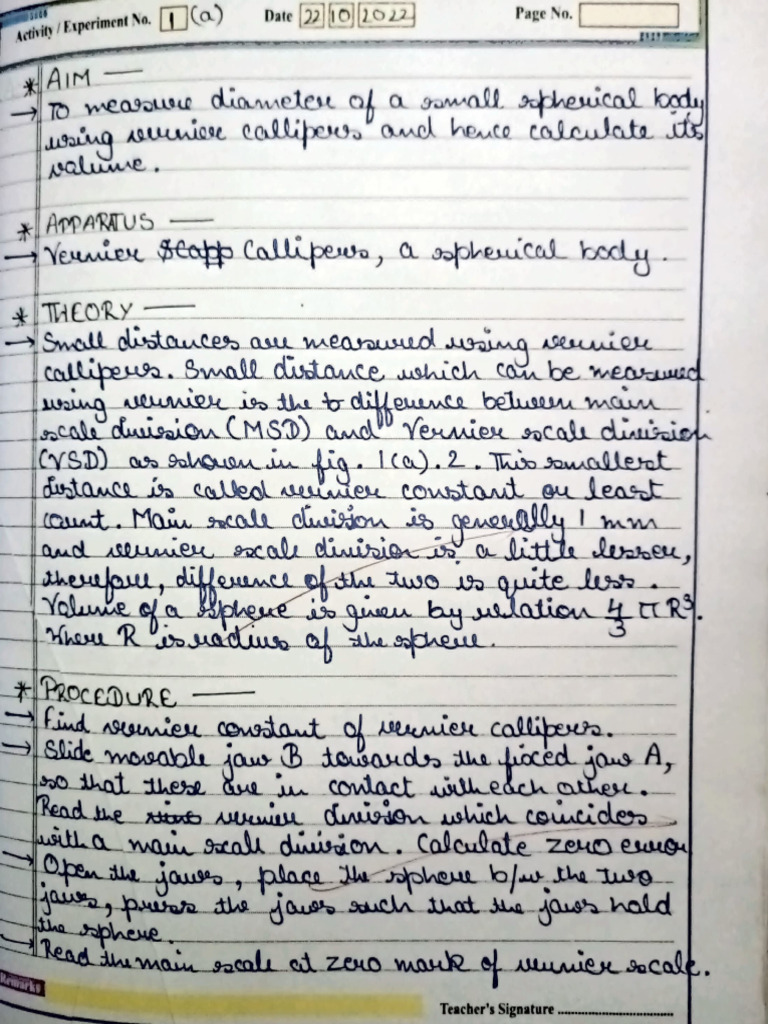 Activity / Experiment No. 1 (a) Date 22 10 2022 Page No.
* AIM —
→ To measure diameter of a small spherical body
using vernier callipers and hence calculate its
volume.
* APPARATUS —
→ Vernier Callipers, a spherical body.
* THEORY —
→ Small distances are measured using vernier
callipers. Small distance which can be measured
using vernier is the difference between main
scale division (MSD) and Vernier scale division
(VSD) as shown in fig. 1(a).2. This smallest
distance is called vernier constant or least
count. Main scale division is generally 1 mm
and vernier scale division is a little lesser,
therefore, difference of the two is quite less.
Volume of a sphere is given by relation 4/3 π R³.
Where R is radius of the sphere.
* PROCEDURE —
→ Find vernier constant of vernier callipers.
→ Slide movable jaw B towards the fixed jaw A,
so that these are in contact with each other.
Read the vernier division which coincides
with a main scale division. Calculate zero error
→ Open the jaws, place the sphere b/w the two
jaws, press the jaws such that the jaws hold
the sphere.
→ Read the main scale at zero mark of vernier scale.
Remarks
Teacher's Signature ..............................